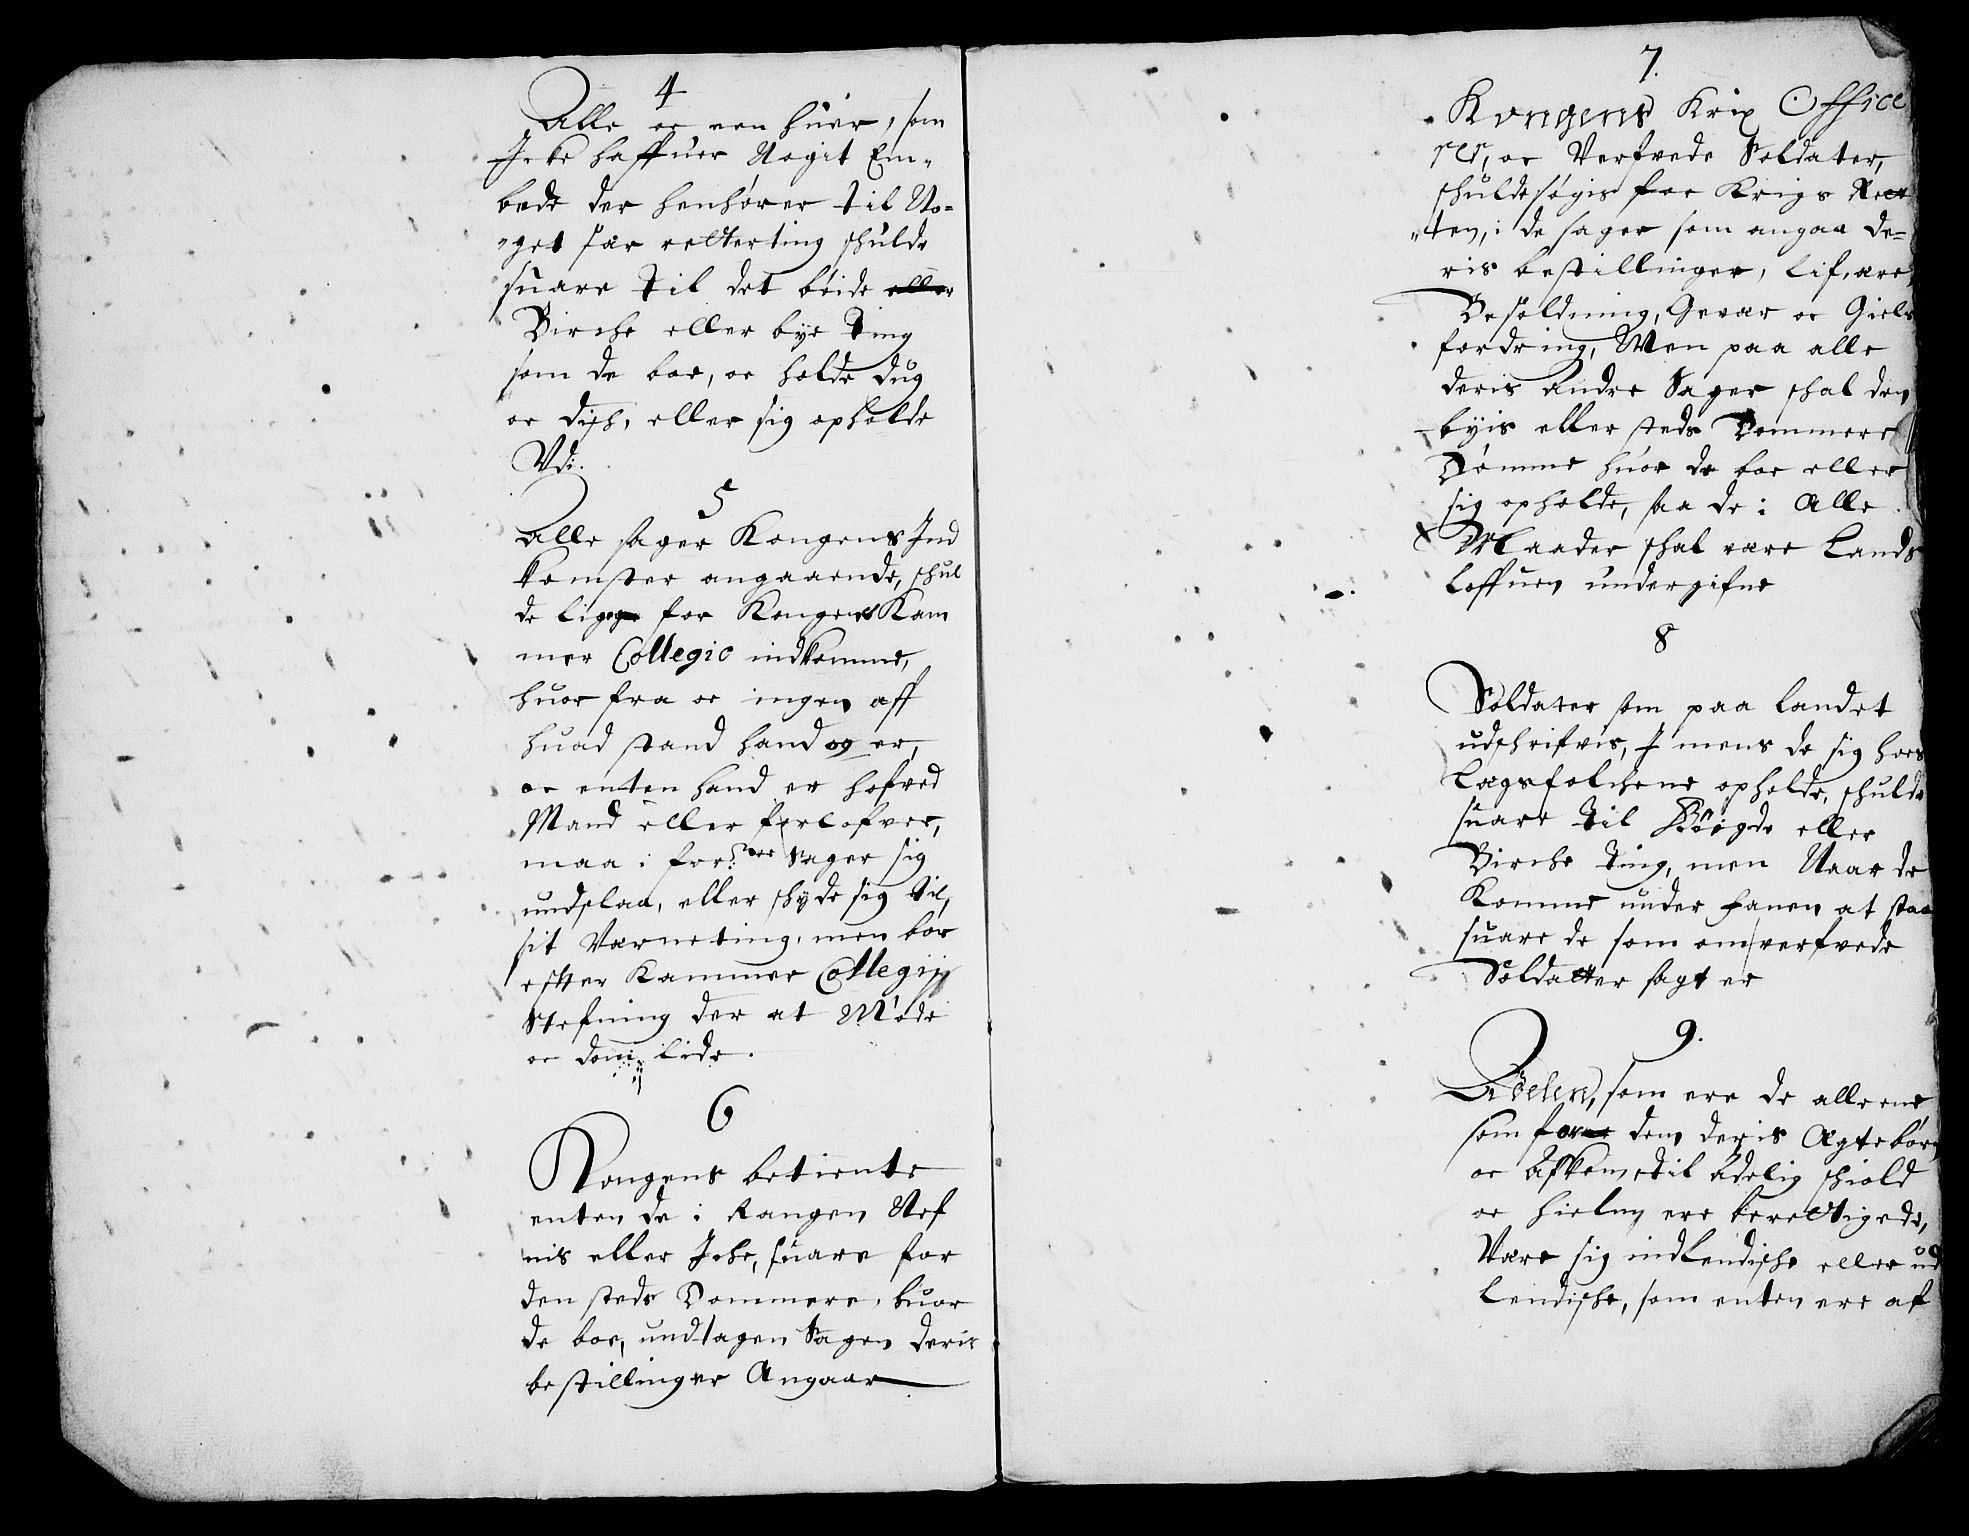 4
Alle oc een huer, som
Icke haffuer Nogit Em„
bede der henhörer til No=
„get sær retterting schulde
suare til det böide eller
Birche eller bye Ting
som de boe, oc holde dug
oc disch, eller sig opholde
Vdi.
5
Alle sager Kongens Ind
komster angaaende, schul
de ligge for Kongens Kam
mer Collegio indkomme,
huor fra oc ingen aff
huad stand hand og er,
oc enten hand er hofved
Mand eller forlofver,
maa i forsne Sager sig
undslaa, eller schyde sig til,
sit Værneting, men bör
efter Kammer Collegij
Stefning der at Möde
oc dom lide.
6
Kongens betiente
enten de i Rangen Nef
nis eller Iche, suare for
den steds Dommere, huor
de boe, undtagen Sagen deris
bestillinger Angaar
7.
Kongens Krix Office
rer, oc Verfvede Soldater,
schulde søgis for Krigs Ret
„ten, i de sager som angaa de=
ris bestillinger, lif, ære,
Besoldning, Gevær oc Giels
fordring, Men paa alle
deris andre Sager schal den
byis eller steds Dommere
Dömme huor de boe eller
sig opholde, saa de i Alle
Maader schal være Lands
loffuen undergifne
8
Soldater som paa landet
udschrifvis, I mens de sig hoes
Lægsfolchene opholde, schulde
suare til Böigde eller
Birche Ting, men Naar de
Komme under fanen at staa
suare de som om verfvede
Soldatter sagt er
9.
Adelen, som ere de alleene
som for dem deris Ægtebörn
oc Afkom, til Adelig schiold
oc hielm ere berettigede,
Være sig indlendische eller ud
lendische, som enten ere af